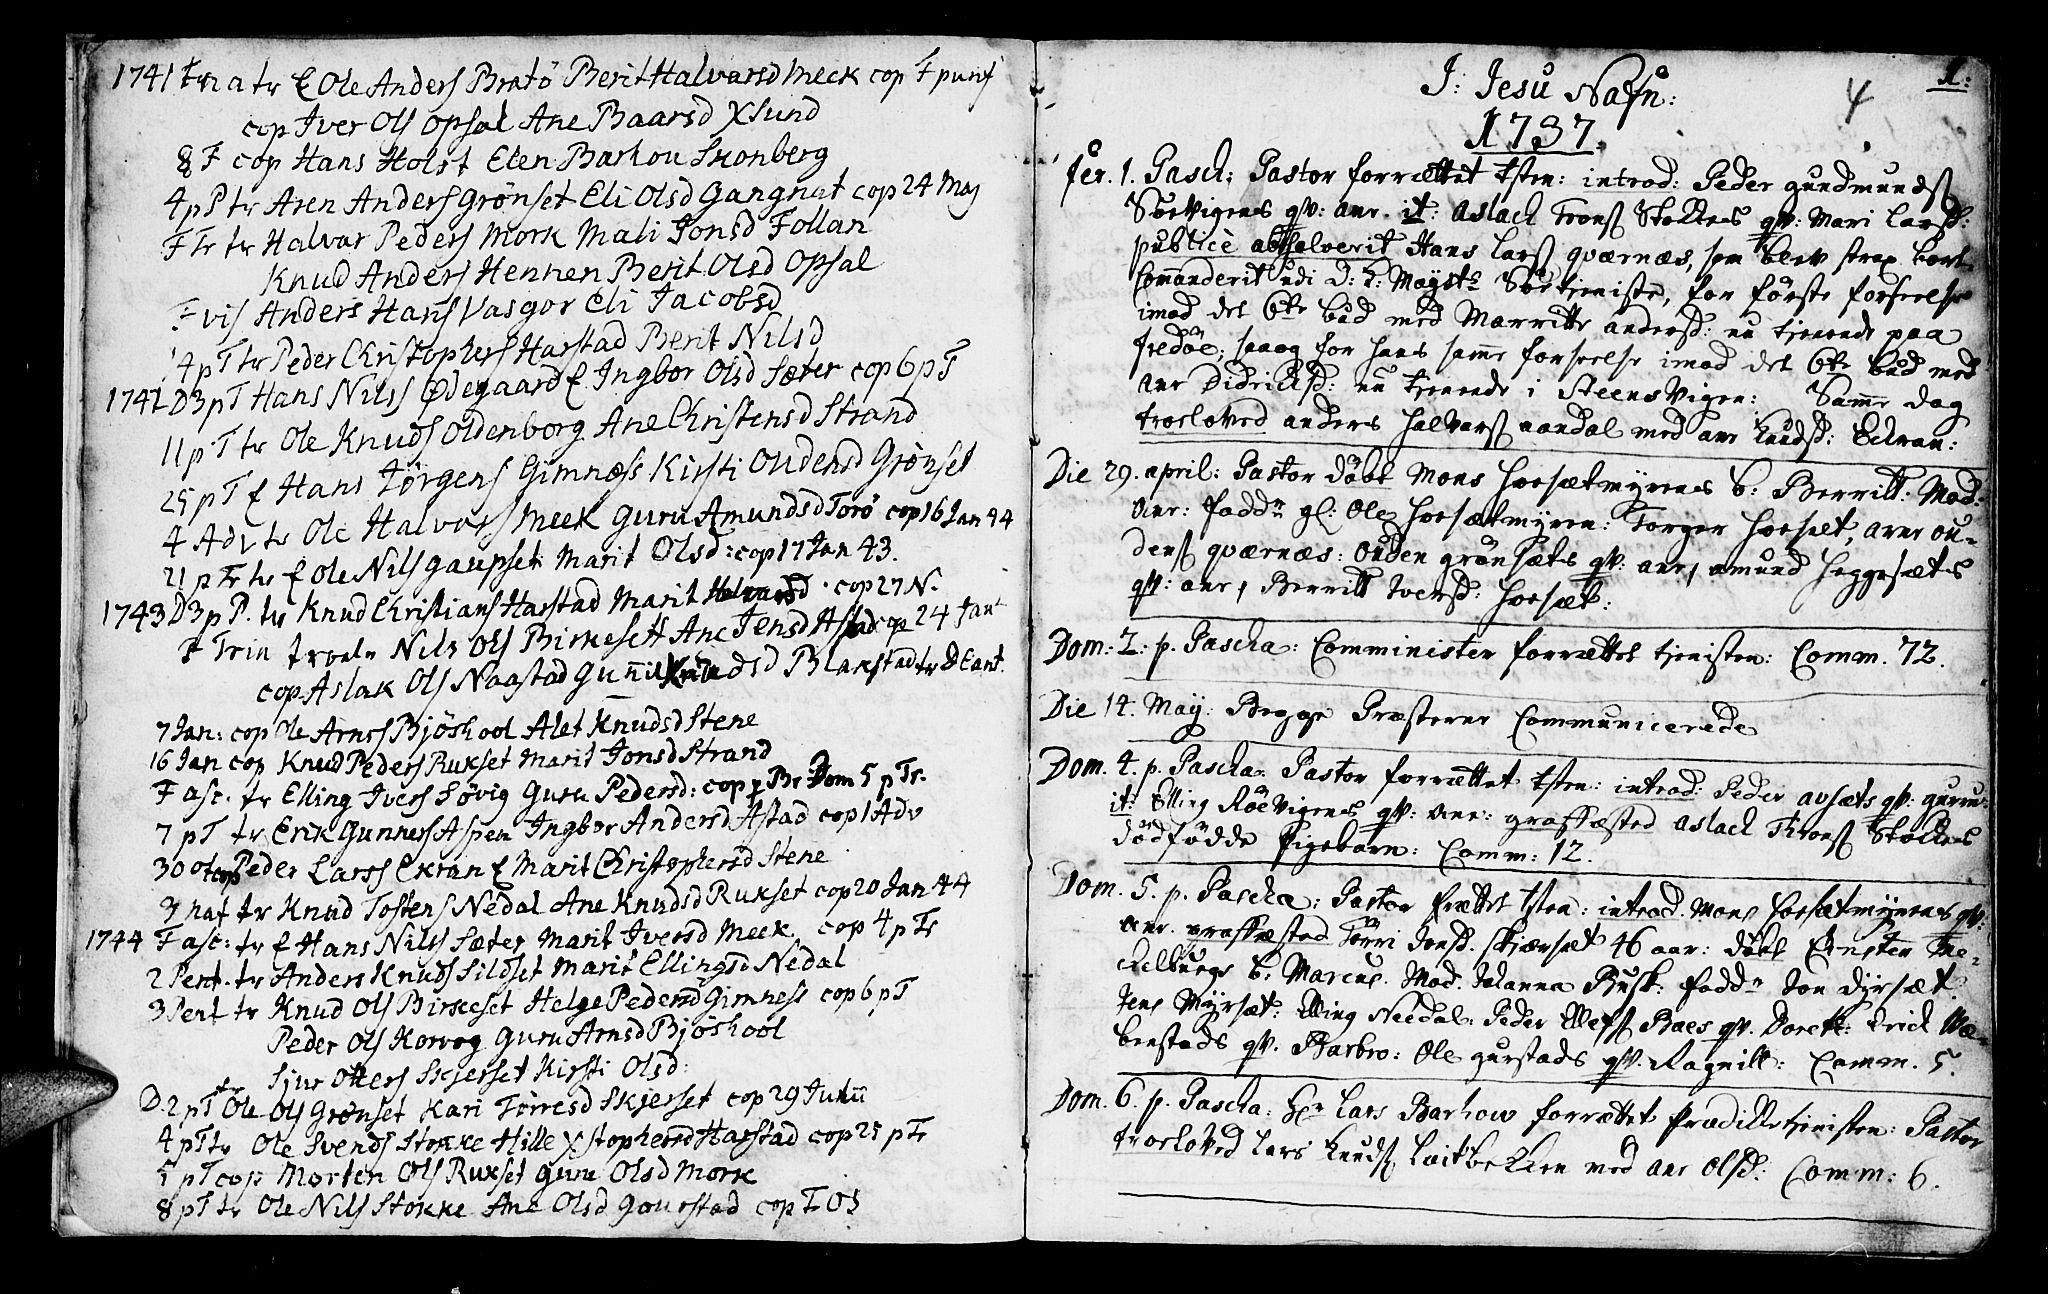 1741 tr E Ole Anders Bratö Berit Halvarsd Meek cop F puns
cop Iver Ols Opsal Ane Baarsd Xsund
8 F cop Hans Holst Elen Barhou Skonberg
4 p P tr Aren Anders Grönset Eli Olsd Gangnat cop 24 Maj
F Tr tr Halvar Peders Mork Mali Jonsd Follan
Knud Anders Hennen Berit Olsd Opsal
F vis Anders Hans Vasgor Eli Jacobsd
4 p T tr Peder Christophers Harstad Berit Nilsd
1742 D 3 p T Hans Nilss Ødegaard E Ingbor Olsd Sæter cop 6 p T
11 p T tr Ole Knuds Oldenborg Ane Christensd Strand
25 p T E Hans Jörgens Gimnæss Kirsti Oudensd Grönset
4 Adv tr Ole Halvars Meek Guru Amundsd Torö cop 16 Jan 44
21 p Tr tr E Ole Nils Gaupset Marit Olsd: cop 17 Jan 43.
1743 D 3 p P. tr Knud Christians Harstad Marit Halvarsd . cop 27 N.
F Trin Nils Ols Birkeset Ane Jensd Astad cop 24 Jan
cop Aslak Ols Naastad Gunnil Knudsd Blakstad tr D Cant.
7 Jan: cop Ole Arnes Bjöshool Alet Knudsd Stene
16 Jan cop Knud Peders Rukset Marit Jonsd Strand
F asc. tr Elling Ivers Sövig Guru Pedersd: cop Dom 5 p Tr.
7 p T tr Erik Gunners Aspen Ingbor Andersd Astad cop 1 Adv
30 cop Peder Larss Ekran E Marit Christophersd Stene
3 nat tr Knud Tostens Nedal Ane Knudsd Rukset cop 20 Jan 44
1744 F asc: tr E Hans Nilss Sæter Marit Iversd Meek cop 4 p Tr
2 Pent. tr Anders Knuds Sildset Marit Ellingsd Nedal
3 Pent tr Knud Ols Birkeset Helge Pedersd Gimness cop 6 p T
Peder Ols Korvog Guru Arnsd Bjöshool
Sjur Otters Skjerset Kirsti Olsd:
D. 2 p T tr Ole Ols Grønset Kari Törresd Skjerset cop 29 Junii
4 p T tr Ole Svends Stokke Hille Xstophersd Harstad cop 25 p Tr
5 p T cop Morten Ols Rukset Guru Olsd Mork
8 p T tr Ole Nils Stokke Ane Olsd Gourstad cop F OS
J: Jesu Nafn: 4 1:
1737.
fer. 1. Pasch: Pastor forrættet tsten: introd: Peder Gundmunds
Sörvigenes qv: anr. it: Aslach Trons Stokkes qv: Mari Larsd:
publicè absolverit Hans Lars Qværnæs, som blev strax bort
Commanderit udi D: K: Mayst: Söe tieniste, for förste forseelse
imod det 6te bud med Marritte Andersd: nu tienende paa
Fredöe; saa og for hans samme forseelse imod det 6te bud med
Anr Didrichsd: nu tienende i Steensvigen: Samme dag
troeloved Anders Halvars Aandal med Anr Knudsd: Eckran:
Die 29. april: Pastor döbt Mons Hoesætmyrenes b: Berritt: Mod:
Anr: Fadd: gl: Ole Hoesætmyren: Torger Hoesæt, Arne Ou-
dens Qværnæs: Ouden Grönsæts qv: Anr, Amund Heggesæts
qv: Anr, Berritt Iversd: Hoesæt:
Dom: 2: p. Pascha: Comminister forrættet tienisten: Comm. 72.
Die 14. May: Begge Præsterne Communicerede
Dom. 4. p. Pascha: Pastor forrættet tsten: introd: Peder Avsæts qv: Guru:
it: Elling Röevigenes qv: Anr: graffæsted Aslach Trons Stokkes
dödfödde Pigebarn: Comm: 12.
Dom. 5. p. Pascha: Pastor frættet tsten: introd. Mons Hoesætmyrenes qv:
Anr. graffæsted Törri Jonsd. Skjærsæt 46 aar: döbt Enster Me-
chelburgs b: Marcus. Mod. Johanna Busk: Fadd: Jon Dyrsæt.
Jens Myrsæt: Elling Needal: Peder Ellefs Baes qv. Doreth: Erich Næ-
benstads qv. Barbro: Ole Gurstads qv. Ragnill: Comm. 5.
Dom. 6. p. Pascha: Hr Lars Barhow forrættet Prædikketienisten: Pastor
troeloved Lars Knuds Leitbekken med Anr Olsd: Comm: 6.